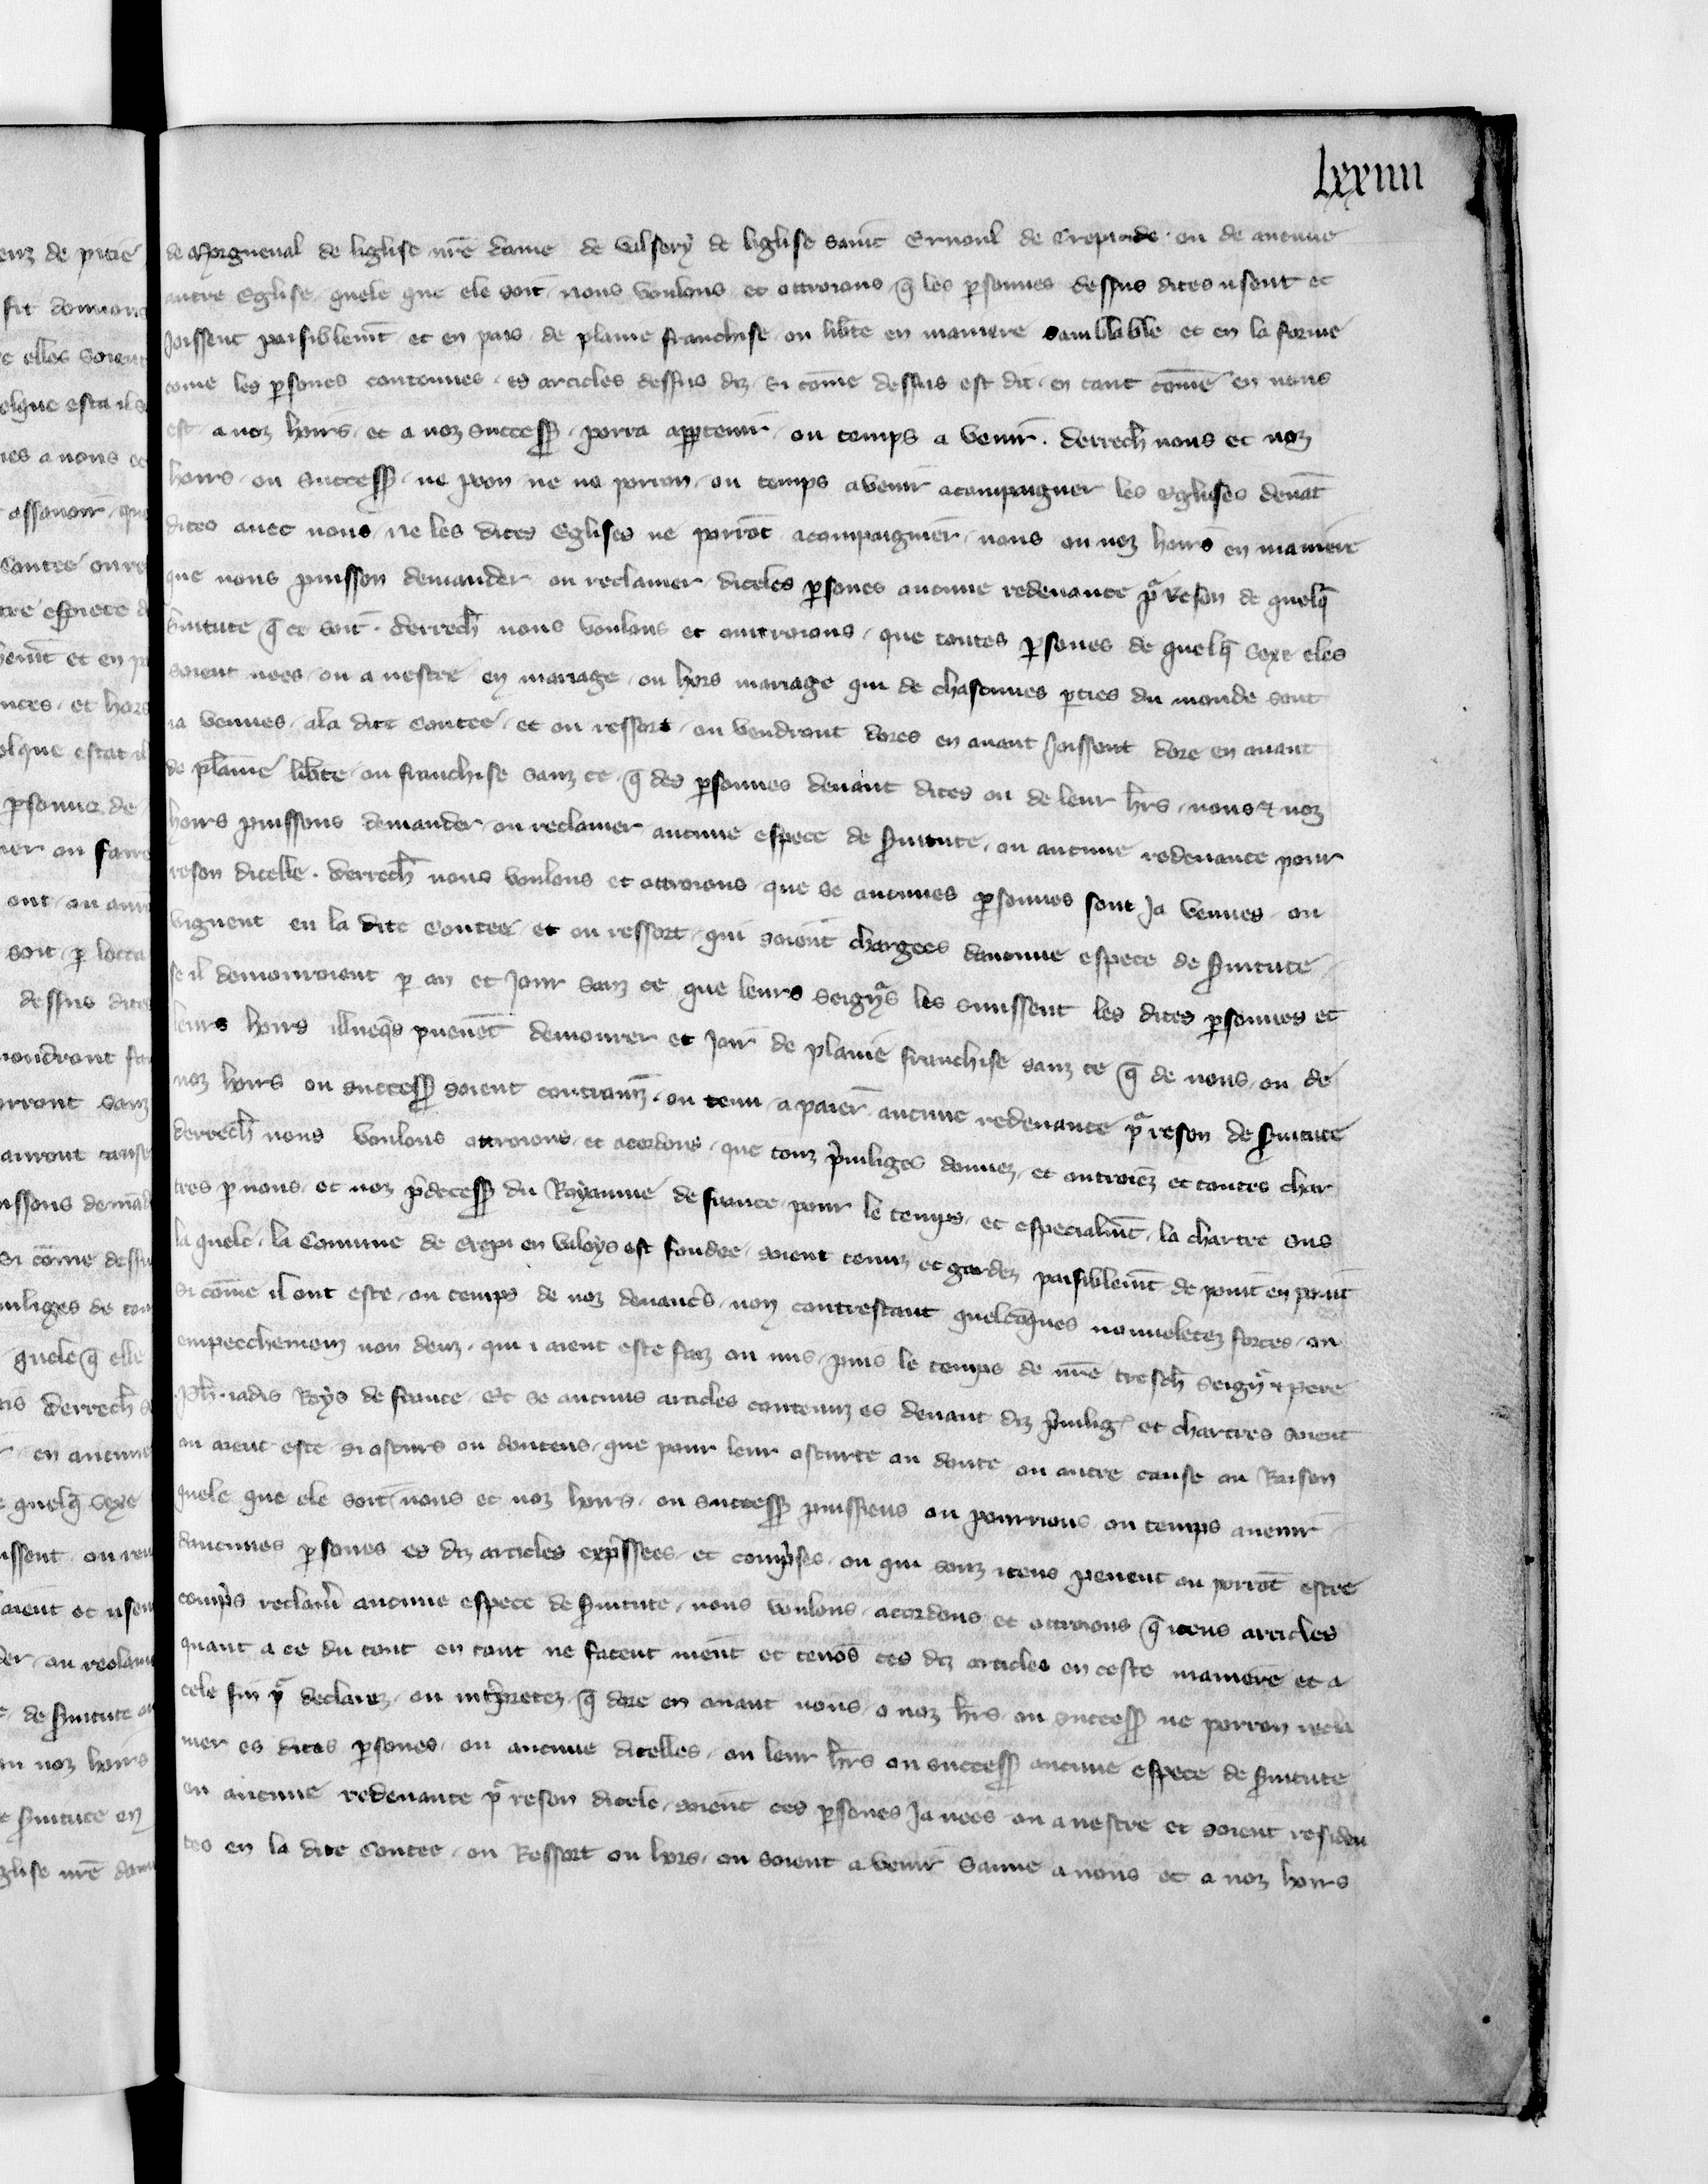 lxxiiii
de Morgneual de liglise nr̃e dame de vilsery de liglise saint Ernoul de Crepi · ou de aucune
autre eglise quele que ele soit nous voulons et ottroions q̃ les ꝑsonnes dessus dites usent et
joissent paisiblemt̃ et en pais de plaine franchise ou lib̃te en maniere samblable et en la forme
cõme les ꝑsones contenues es articles dessus diz si cõme dessus est dit en tant cõme en nous
est a noz hoirs et a noz success̃ porra appartenir ou temps a venir . derrech̃ nous et noz
hoirs ou success̃ ne poon ne ne porron ou temps avenir acompaigner les eglises deuãt
dites auec nous ne les dites eglises ne porrõt acompaignier nous ou noz hoirs en maniere
que nous puisson demander ou reclamer diceles ꝑsones aucune redeuance pᵃ reson de quelq̃
s̃uitute q̃ ce soit . derrech̃ nous voulons et ouitroions que toutes ꝑsones de quelq̃ sexe eles
soient nees ou a nestre en mariage ou hors mariage qui de chascunes ꝑties du monde sont
ia venues ala dite Contee et ou ressort ou vendront dores en auant joissent dore en auant
de plaine lib̃te ou franchise sanz ce q̃ des ꝑsonnes deuant dites ou de leur hr̃s nous ⁊ noz
hoirs puissons demander ou reclamer aucune espece de s̃uitute ou aucune redeuance pour
reson dicelle . derrech̃ nous voulons et ottroions que se aucunes ꝑsonnes sont ja venues ou
viegnent en la dite Contee et ou ressort qui soient chargees daucune espece de s̃uitute
se il demouroient ꝑ an et jour sanz ce que leurs seignᵃs les suiuissent les dites ꝑsonnes et
leurs hoirs illueq̃s pueuẽt demourer et joir de plaine franchise sanz ce q̃ de nous ou de
noz hoirs ou success̃ soient contrainz ou tenu a paier aucune redeuance pᵃ reson de s̃uitute
derrech̃ nous voulons ottroions et acordons que touz p̃uiliges donnez et outroiez et toutes char
tres ꝑ nous et noz p̃decess̃ du Royaume de france pour le temps et especialmt̃ la chartre sus
la quele la Commune de Crepi en valoys est fondee soient tenuz et gardez paisiblemt̃ de point en point
si cõme il ont este ou temps de noz deuanc̃s non contrestant quelcõques nouueletez forces ou
empecchemenz non deuz qui i aient este faiz ou mis puis le temps de nr̃e tresch̃ seignᵃ ⁊ pere
Ph̃ . iadis Roys de france Et se aucuns articles contenuz es deuant diz p̃uilig̃ et chartres soient
ou aient este si oscurs ou douteus que pour leur oscurte ou doute ou autre cause ou Raison
quele que ele soit nous et noz hoirs ou success̃ puissiens ou pourrions ou temps auenir
daucunes ꝑsones es diz articles exp̃ssees et comp̃ses ou qui souz iceus peuent ou porrõt estre
comp̃s reclam̃ aucune espece de s̃uitute nous voulons acordons et ottroions q̃ iceus articles
quant a ce du tout en tout ne facent nient et tenõs ces diz articles en ceste maniere et a
cele fin pᵃ declarez ou int̃pretez q̃ dore en auant nous o noz hr̃s ou success̃ ne porron recla
mer es dites ꝑsones ou aucune dicelles ou leur hr̃s ou success̃ aucune espece de s̃uitute
ou aucune redeuance pᵃ reson dicele soient ces ꝑsones ja nees ou a nestre et soient residen
tes en la dite Contee ou Ressort ou hors ou soient a venir Sauue a nous et a noz hoirs